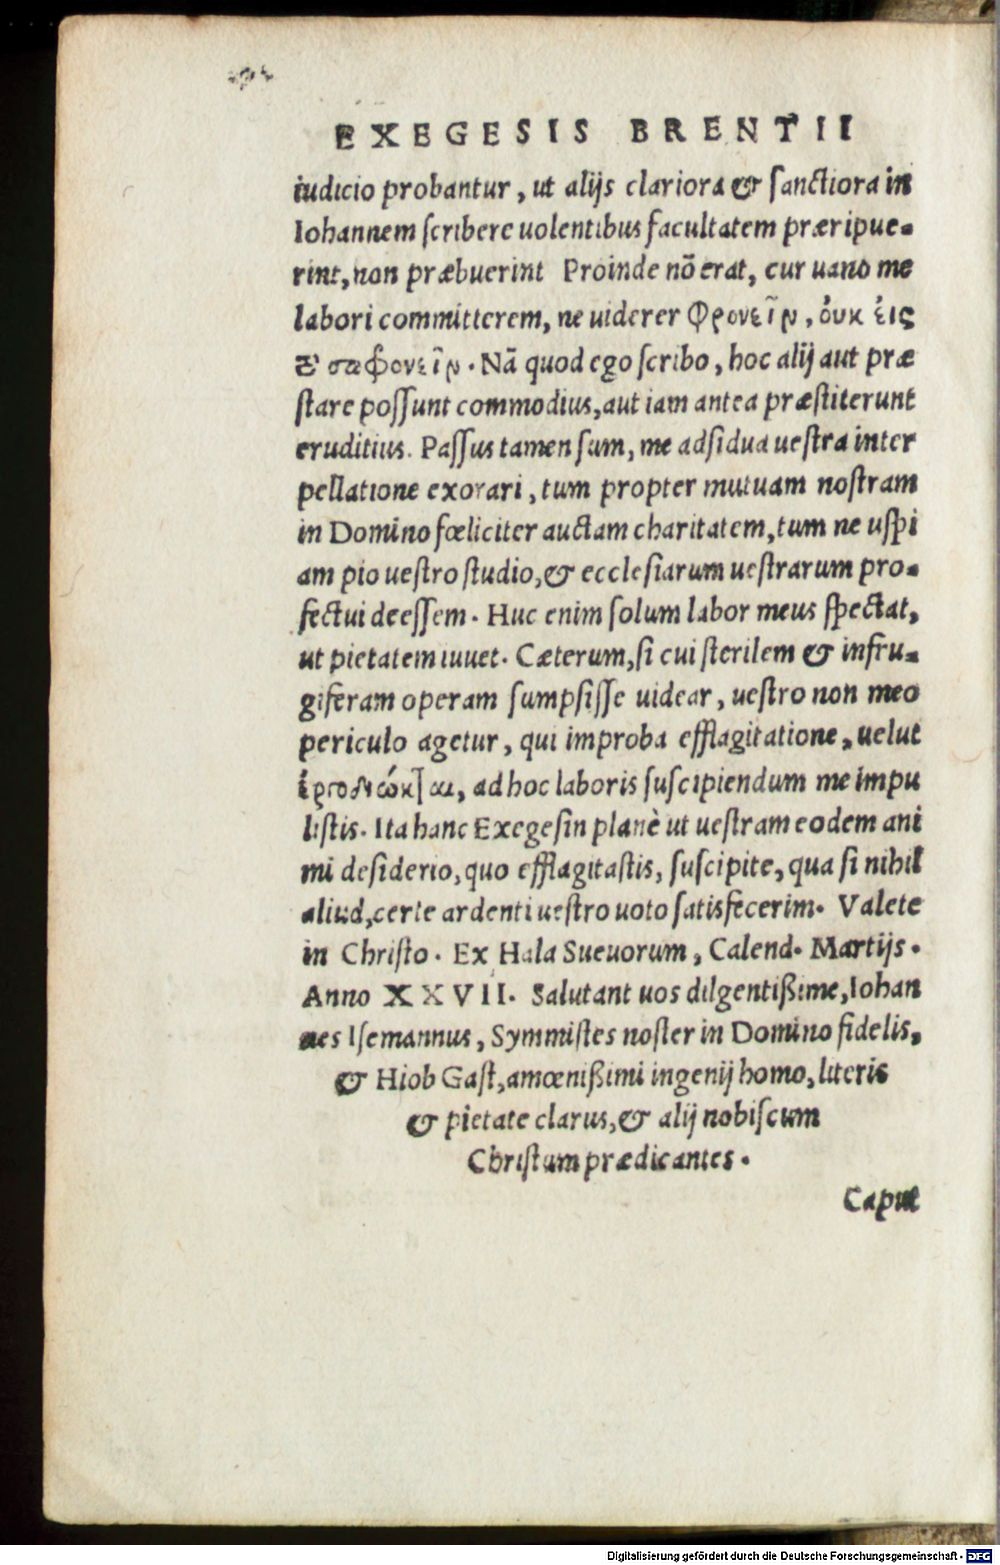 EXEGESIS BRENTII
iudicio probantur, ut alijs clariora & sanctiora in
Iohannem scribere uolentibus facultatem præripue-
rint, non præbuerint Proinde nõ erat, cur uano me
labori committerem, ne uiderer Φρονεῖν, ὀυκ ἐις
τὸ σωφρονεῖν. Nã quod ego scribo, hoc alij aut præ
stare possunt commodius, aut iam antea præstiterunt
eruditius. Passus tamen sum, me adsidua uestra inter
pellatione exorari, tum propter mutuam nostram
in Domino fœliciter auctam charitatem, tum ne uspi
am pio uestro studio, & ecclesiarum uestrarum pro-
fectui deessem. Huc enim solum labor meus spectat,
ut pietatem iuuet. Cæterum, si cui sterilem & infru-
giferam operam sumpsisse uidear, uestro non meo
periculo agetur, qui improba efflagitatione, uelut
ἐργοδιώκται, ad hoc laboris suscipiendum me impu
listis. Ita hanc Exegesin planè ut uestram eodem ani
mi desiderio, quo efflagitastis, suscipite, qua si nihil
aliud, certe ardenti uestro uoto satisfecerim. Valete
in Christo. Ex Hala Sueuorum, Calend. Martijs.
Anno XXVII. Salutant uos dilgentißime, Iohan
nes Isemannus, Symmistes noster in Domino fidelis,
& Hiob Gast, amœnißimi ingenij homo, literis
& pietate clarus, & alij nobiscum
Christum prædicantes.
Caput
Digitalisierung gefördert durch die Deutsche Forschungsgemeinschaft - DFG